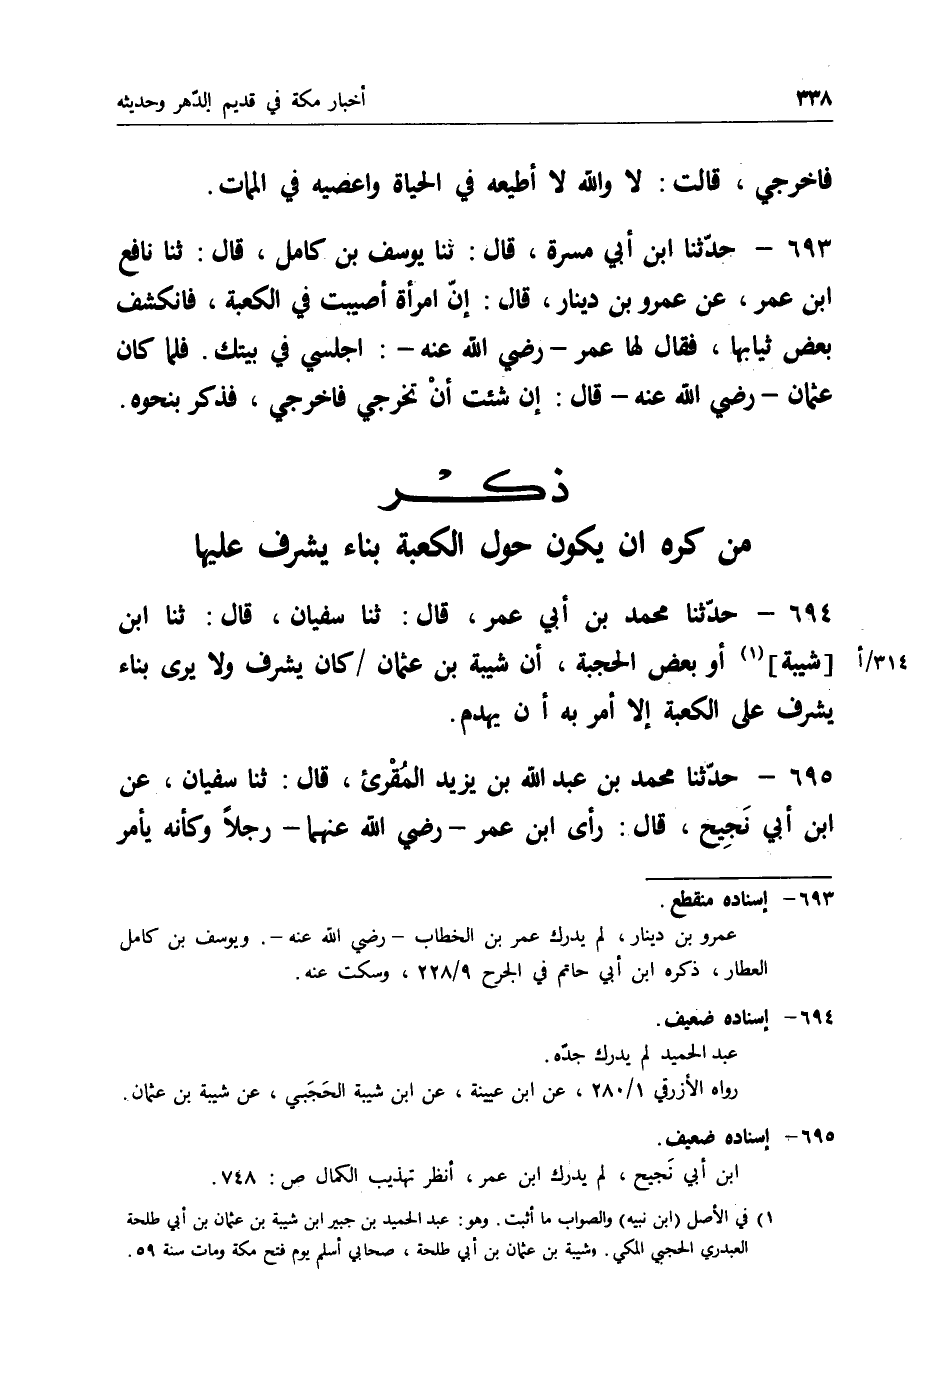 ٣٣٨ أخبار مكة في قديم الدّهر وحديثه
فاخرجي ، قالت : لا والله لا أطيعه في الحياة واعصيه في الممات .
٦٩٣ – حدّثنا ابن أبي مسرة ، قال : ثنا يوسف بن كامل ، قال : ثنا نافع
ابن عمر ، عن عمرو بن دينار ، قال : إنّ امرأة أصيبت في الكعبة ، فانكشف
بعض ثيابها ، فقال لها عمر – رضي الله عنه – : اجلسي في بيتك . فلما كان
عثمان – رضي الله عنه – قال : إن شئت أنْ تخرجي فاخرجي ، فذكر بنحوه .
ذكر
من كره ان يكون حول الكعبة بناء يشرف عليها
٦٩٤ – حدّثنا محمد بن أبي عمر ، قال : ثنا سفيان ، قال : ثنا ابن
[شيبة] (١) أو بعض الحجبة ، أن شيبة بن عثمان / كان يشرف ولا يرى بناء
٣١٤/أ
يشرف على الكعبة إلا أمر به أ ن يهدم .
٦٩٥ – حدّثنا محمد بن عبد الله بن يزيد المُقْرئ ، قال : ثنا سفيان ، عن
ابن أبي نَجِيح ، قال : رأى ابن عمر – رضي الله عنهما – رجلاً وكأنه يأمر
٦٩٣ – إسناده منقطع .
عمرو بن دينار ، لم يدرك عمر بن الخطاب – رضي الله عنه – . ويوسف بن كامل
العطار ، ذكره ابن أبي حاتم في الجرح ٢٢٨/٩ ، وسكت عنه .
٦٩٤ – إسناده ضعيف .
عبد الحميد لم يدرك جدّه .
رواه الأزرقي ٢٨٠/١ ، عن ابن عيينة ، عن ابن شيبة الحَجَبي ، عن شيبة بن عثمان .
٦٩٥ – إسناده ضعيف .
ابن أبي نَجيح ، لم يدرك ابن عمر ، أنظر تهذيب الكمال ص : ٧٤٨ .
١) في الأصل (ابن نبيه) والصواب ما أثبت . وهو : عبد الحميد بن جبير ابن شيبة بن عثمان بن أبي طلحة
العبدري الحجبي المكي . وشيبة بن عثمان بن أبي طلحة ، صحابي أسلم يوم فتح مكة ومات سنة ٥٩ .